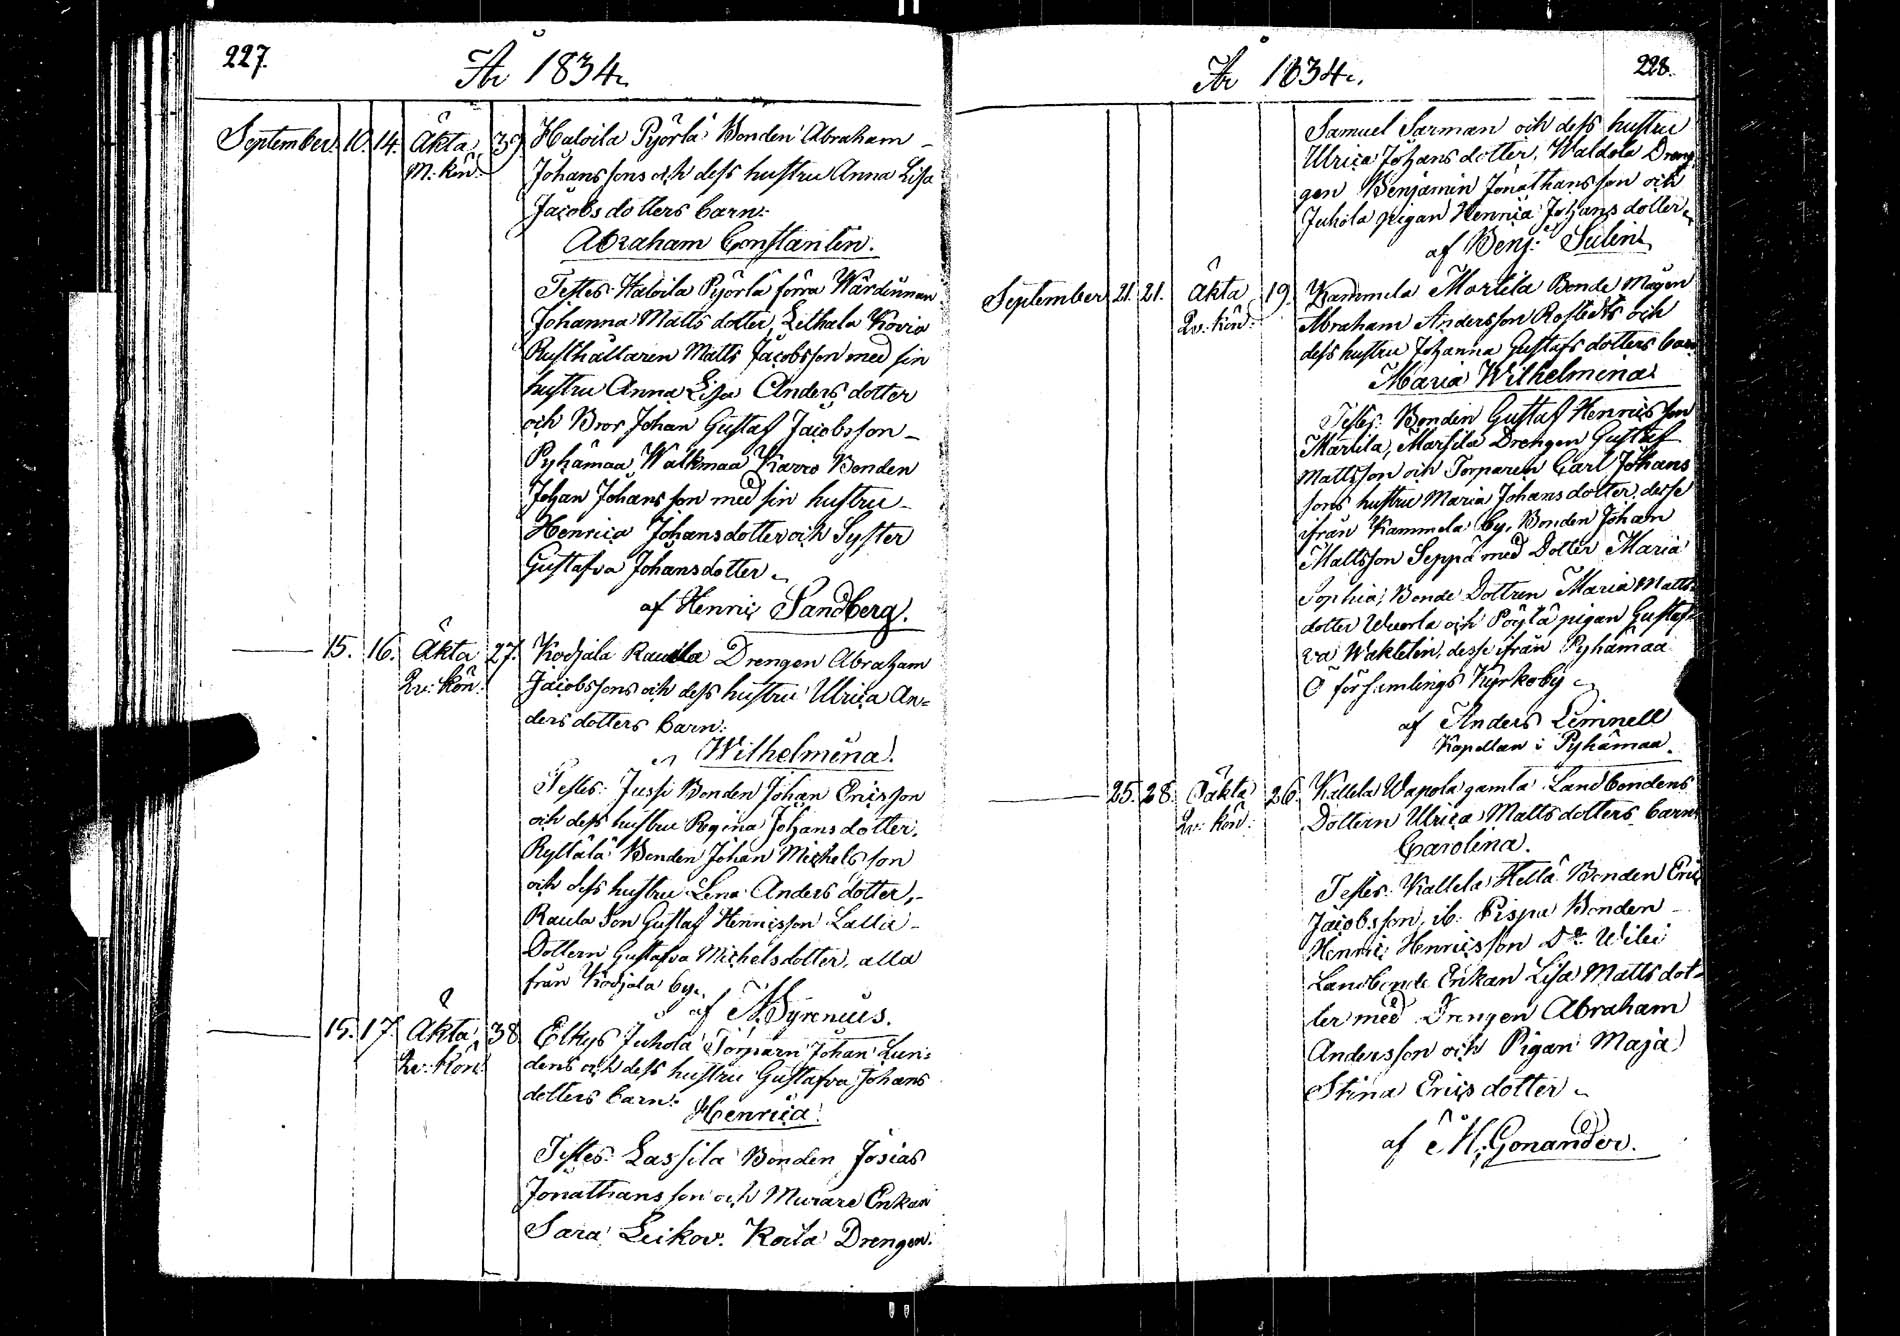 227.
År 1834.
September. 10. 14. Äkta 39. Haloila Pyörlä Bonden Abraham
M. kön. Johanssons och dess hustru Anna Lisa
Jacobsdotters barn:
Abraham Constantin.
Testes: Haloila Pyörlä förra Wärdinnan
Johanna Matts dotter, Lethala
Rusthållaren Matts Jacobsson med sin
hustru Anna Lisa Anders dotter
och Bror Johan Gustaf Jacobsson
Pyhämaa Walkmaa Karro Bonden
Johan Johansson med sin hustru
Henrica Johansdotter och Syster
Gustafva Johansdotter
af Henric Sandberg.
15. 16. Äkta 27. Kodjala Rauvla Drengen Abraham
Qv: kön. Jacobssons och dess hustru Ulrica An=
dersdotters barn:
Wilhelmina.
Testes: Jussi Bonden Johan Ericsson
och dess hustru Regina Johans dotter.
Ryttälä Bonden Johan Michelsson
och dess hustru Lena Anders dotter,
Raula Son Gustaf Henricsson Lalla
Dottern Gustafva Michelsdotter, alla
från Kodjala by.
af N. Syrenius.
15. 17. Äkta 38. Elkys Juhola Torparn Johan Lun=
Qv: kön dens och dess hustru Gustafva Johans
dotters barn:
Henrica.
Testes: Lassila Bonden Josias
Jonathansson och Murare Enkan
Sara Leikov. Koila Drengen
År 1834. 228.
Samuel Sarman och dess hustru
Ulrica Johans dotter. Waldola Dreng
gen Benjamin Jonathansson och
Juhola pigan Henrica Johans dotter
af Benj: Sulin
September 21. 21. Äkta 19. Kammela Martila Bonde Mågen
Qv: kön. Abraham Andersson Rostedts och
dess hustru Johanna Gustafs dotters barn
Maria Wilhelmina
Testes: Bonden Gustaf Henricsson
Martila, Marsila Drengen Gustaf
Mattsson och Torparen Carl Johans
sons hustru Maria Johansdotter, desse
ifrån Kammela by, Bonden Johan
Mattsson Seppä med Dotter Maria
Sophia, Bonde Dottren Maria Matts=
dotter Wuorla och Pöytä pigan Gustaf=
va Waktelin, desse ifrån Pyhämaa
Ö församlings Kyrkoby
af Anders Limnell
Kapellan i Pyhämaa.
25. 28. Oäkta 26. Kallela Wapola gamla Landbondens
Qv: kön. Dottern Ulrica Mattsdotters barn
Carolina.
Testes: Kallela Heltä Bonden Eric
Jacobsson, ib: Pispa Bonden
Henric Henricsson Do Wilei
Landbonde Enkan Lisa Mattsdot=
ter med Drengen Abraham
Andersson och Pigan Maja
Stina Erics dotter
af M. Gonander.